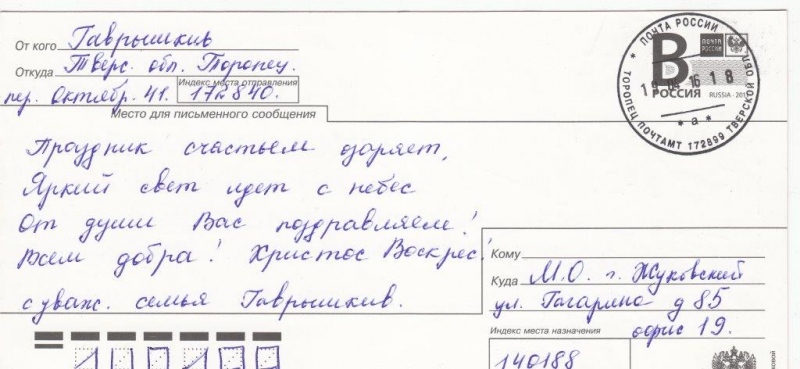 От кого Гаврышкив
Откуда Тверс. обл. Торопец.
пер. Октябр. 41.
Индекс места отправления
172840.
Место для письменного сообщения
Праздник счастьем озаряет,
Яркий свет идет с небес
От души Вас поздравляем!
Всем добра! Христос Воскрес!
с уваж. семья Гаврышкив.
ПОЧТА РОССИИ
ТОРОПЕЦ ПОЧТАМТ 172899 ТВЕРСКОЙ ОБЛ
* а *
16 18
B
ПОЧТА РОССИИ
РОССИЯ
RUSSIA
Кому
Куда М.О. г. Жуковский
ул. Гагарина д 85
офис 19.
Индекс места назначения
140188